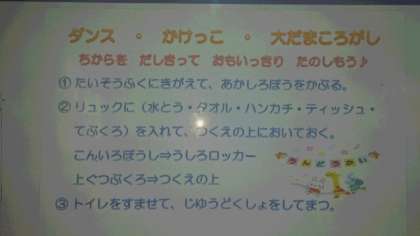 ダンス ・ かけっこ ・ 大だまころがし
ちからを だしきって おもいっきり たのしもう♪
① たいそうふくにきがえて、あかしろぼうをかぶる。
② リュックに（水とう・タオル・ハンカチ・ティッシュ・
てぶくろ）を入れて、つくえの上においておく。
こんいろぼうし⇒うしろロッカー
上ぐつぶくろ⇒つくえの上
うんどうかい
③ トイレをすませて、じゆうどくしょをしてまつ。